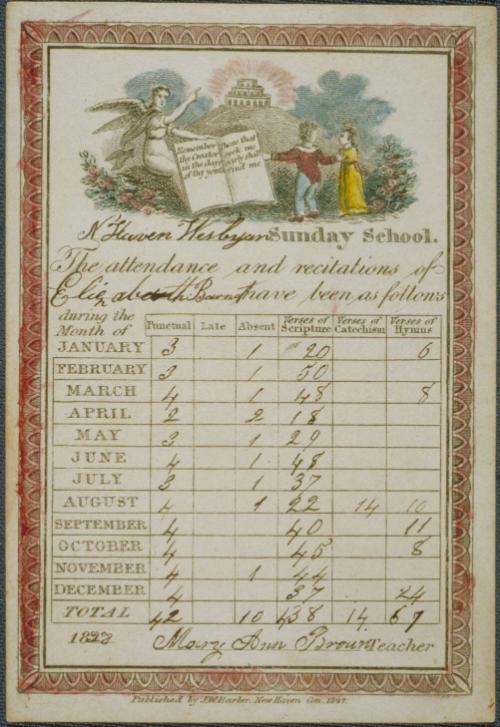 Remember thy Creator in the days of thy youth
Those that seek me early shall find me
N Haven Wesleyan Sunday School.
The attendance and recitations of
Elizabeth have been as follows
during the Month of | Punctual | Late | Absent | Verses of Scripture | Verses of Catechism | Verses of Hymns
JANUARY 3 1 20 6
FEBRUARY 3 1 50
MARCH 4 1 48 8
APRIL 2 2 18
MAY 3 1 29
JUNE 4 1 48
JULY 3 1 37
AUGUST 4 1 22 14 10
SEPTEMBER 4 40 11
OCTOBER 4 45 8
NOVEMBER 4 1 44
DECEMBER 4 37 24
TOTAL 42 10 438 14 67
Mary Ann Brown Teacher
Published by J.W. Barber, New Haven Con. 1827.